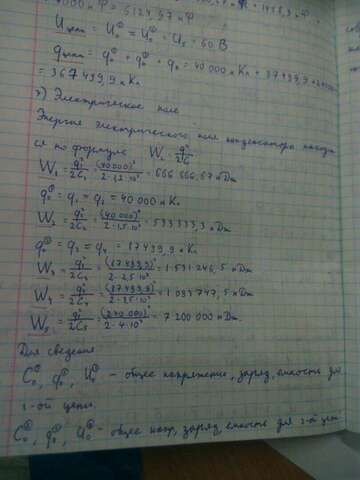 = 6124,97 нФ
U цепи = U₀ = U₀ = U₅ = 60 В
q цепи = q₀ + q₀ + q₅ = 40 000 нКл + 87 499,9
= 367 499,9 нКл
7) Электрическое поле
Энергия электрического поля конденсатора находи
ся по формуле W = q²/2C
W₁ = q₁²/2C₁ = (40 000)²/2·1,2·10³ = 666 666,67 нДж
q₀ = q₁ = q₂ = 40 000 нКл
W₂ = q₂²/2C₂ = (40 000)²/2·1,5·10³ = 533 333,3 нДж
q₀ = q₃ = q₄ = 87 499,9 нКл
W₃ = q₃²/2C₃ = (87 499,9)²/2·2,5·10³ = 1 531 246,5 нДж
W₄ = q₄²/2C₄ = (87 499,9)²/2·3,5·10³ = 1 093 747,5 нДж
W₅ = q₅²/2C₅ = (240 000)²/2·4·10³ = 7 200 000 нДж.
Для сведения
C₀, q₀, U₀ – общее напряжение, заряд, емкость для
1-ой цепи.
C₀, q₀, U₀ – общее напр, заряд, емкость для 2-ой цеп